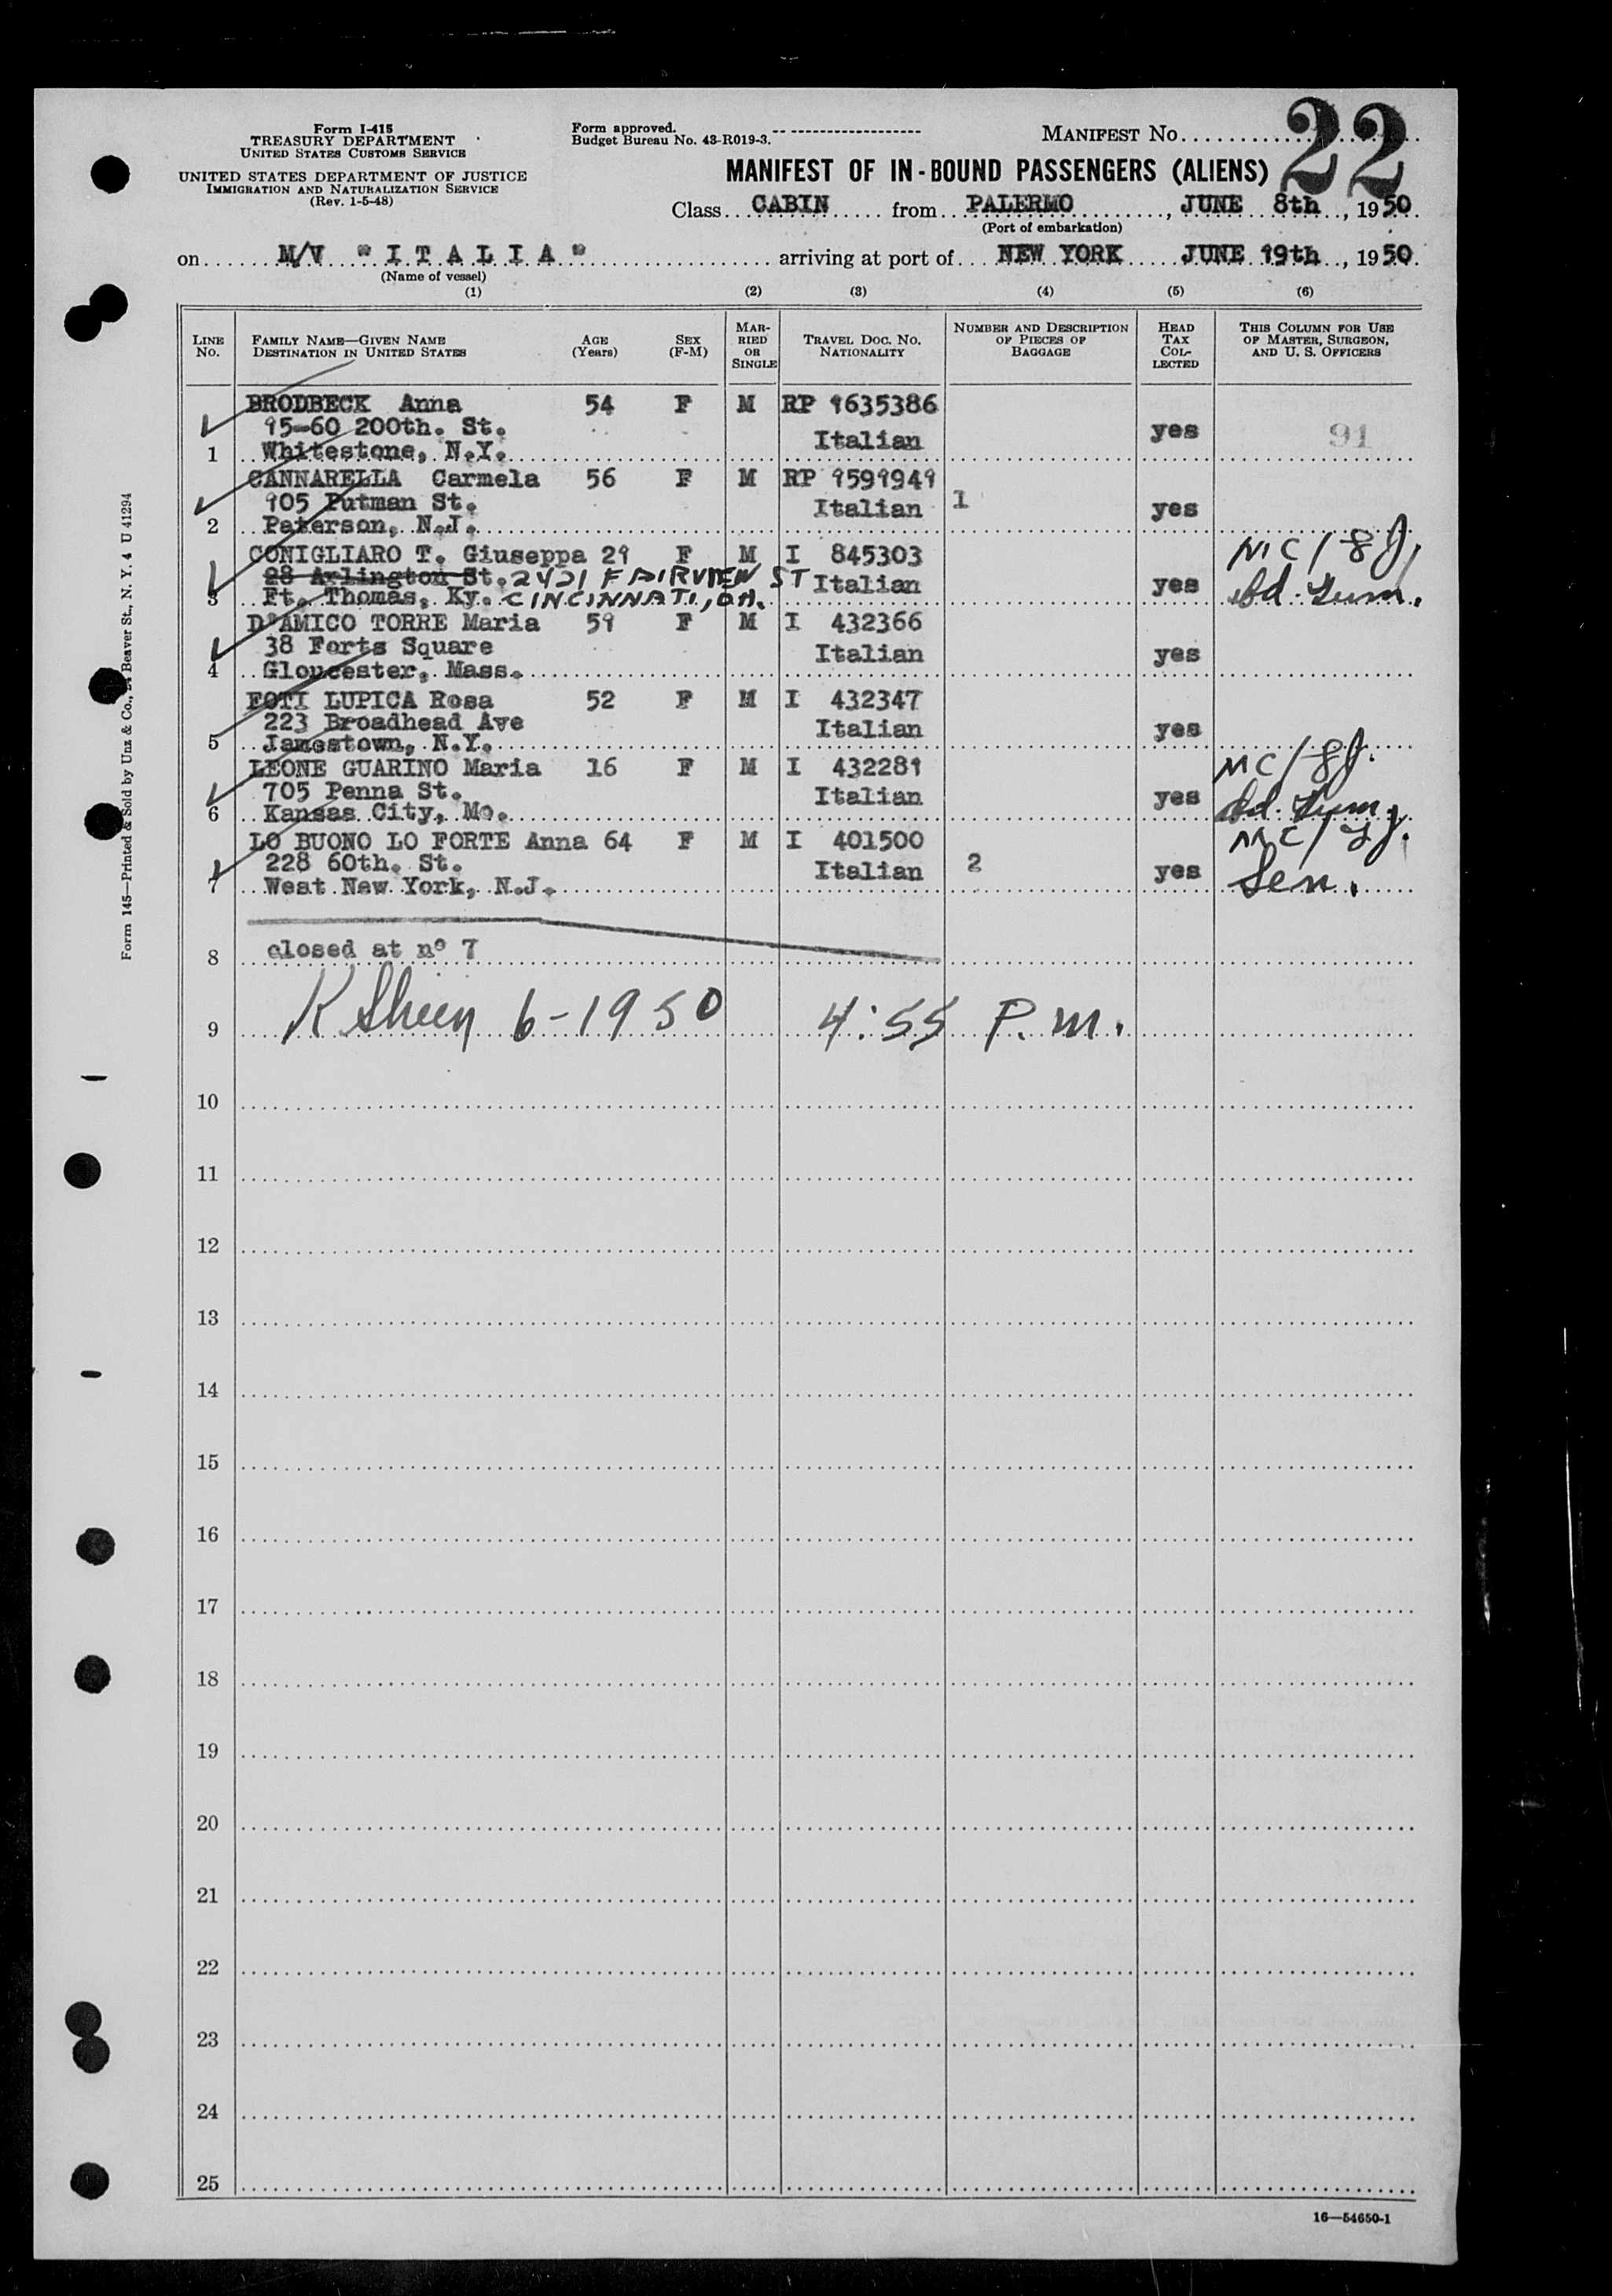 Form I-415
TREASURY DEPARTMENT
UNITED STATES CUSTOMS SERVICE
UNITED STATES DEPARTMENT OF JUSTICE
IMMIGRATION AND NATURALIZATION SERVICE
(Rev. 1-5-48)
Form approved.
Budget Bureau No. 43-R019-3.
MANIFEST No. 22
MANIFEST OF IN-BOUND PASSENGERS (ALIENS)
Class CABIN from PALERMO, JUNE 8th, 1950.
(Port of embarkation)
on M/V "ITALIA" arriving at port of NEW YORK JUNE 19th, 1950.
(Name of vessel)
(1) (2) (3) (4) (5) (6)
LINE No. FAMILY NAME—GIVEN NAME DESTINATION IN UNITED STATES AGE (Years) SEX (F-M) MARRIED OR SINGLE TRAVEL DOC. NO. NATIONALITY NUMBER AND DESCRIPTION OF PIECES OF BAGGAGE HEAD TAX COLLECTED THIS COLUMN FOR USE OF MASTER, SURGEON, AND U. S. OFFICERS
BRODBECK Anna 54 F M RP 9635386
15-60 200th. St. Italian yes 91
1 Whitestone, N.Y.
CANNARELLA Carmela 56 F M RP 9599949
905 Putman St. Italian 1 yes
2 Paterson, N.J.
CONIGLIARO T. Giuseppa 29 F M I 845303 MC/8J.
28 Arlington St. 2421 FAIRVIEW ST Italian yes
3 Ft. Thomas, Ky. CINCINNATI, OH.
D'AMICO TORRE Maria 59 F M I 432366
38 Forts Square Italian yes
4 Gloucester, Mass.
FOTI LUPICA Rosa 52 F M I 432347
223 Broadhead Ave Italian yes
5 Jamestown, N.Y.
LEONE GUARINO Maria 16 F M I 432289 MC/8J.
705 Penna St. Italian yes
6 Kansas City, Mo.
LO BUONO LO FORTE Anna 64 F M I 401500
228 60th. St. Italian 2 yes Sen.
7 West New York, N.J.
8 closed at nº 7
9 K Sheen 6-1950 4:55 P.m.
10
11
12
13
14
15
16
17
18
19
20
21
22
23
24
25
16—54650-1
Form 145—Printed & Sold by Unz & Co., Beaver St., N. Y. 4 U 41294